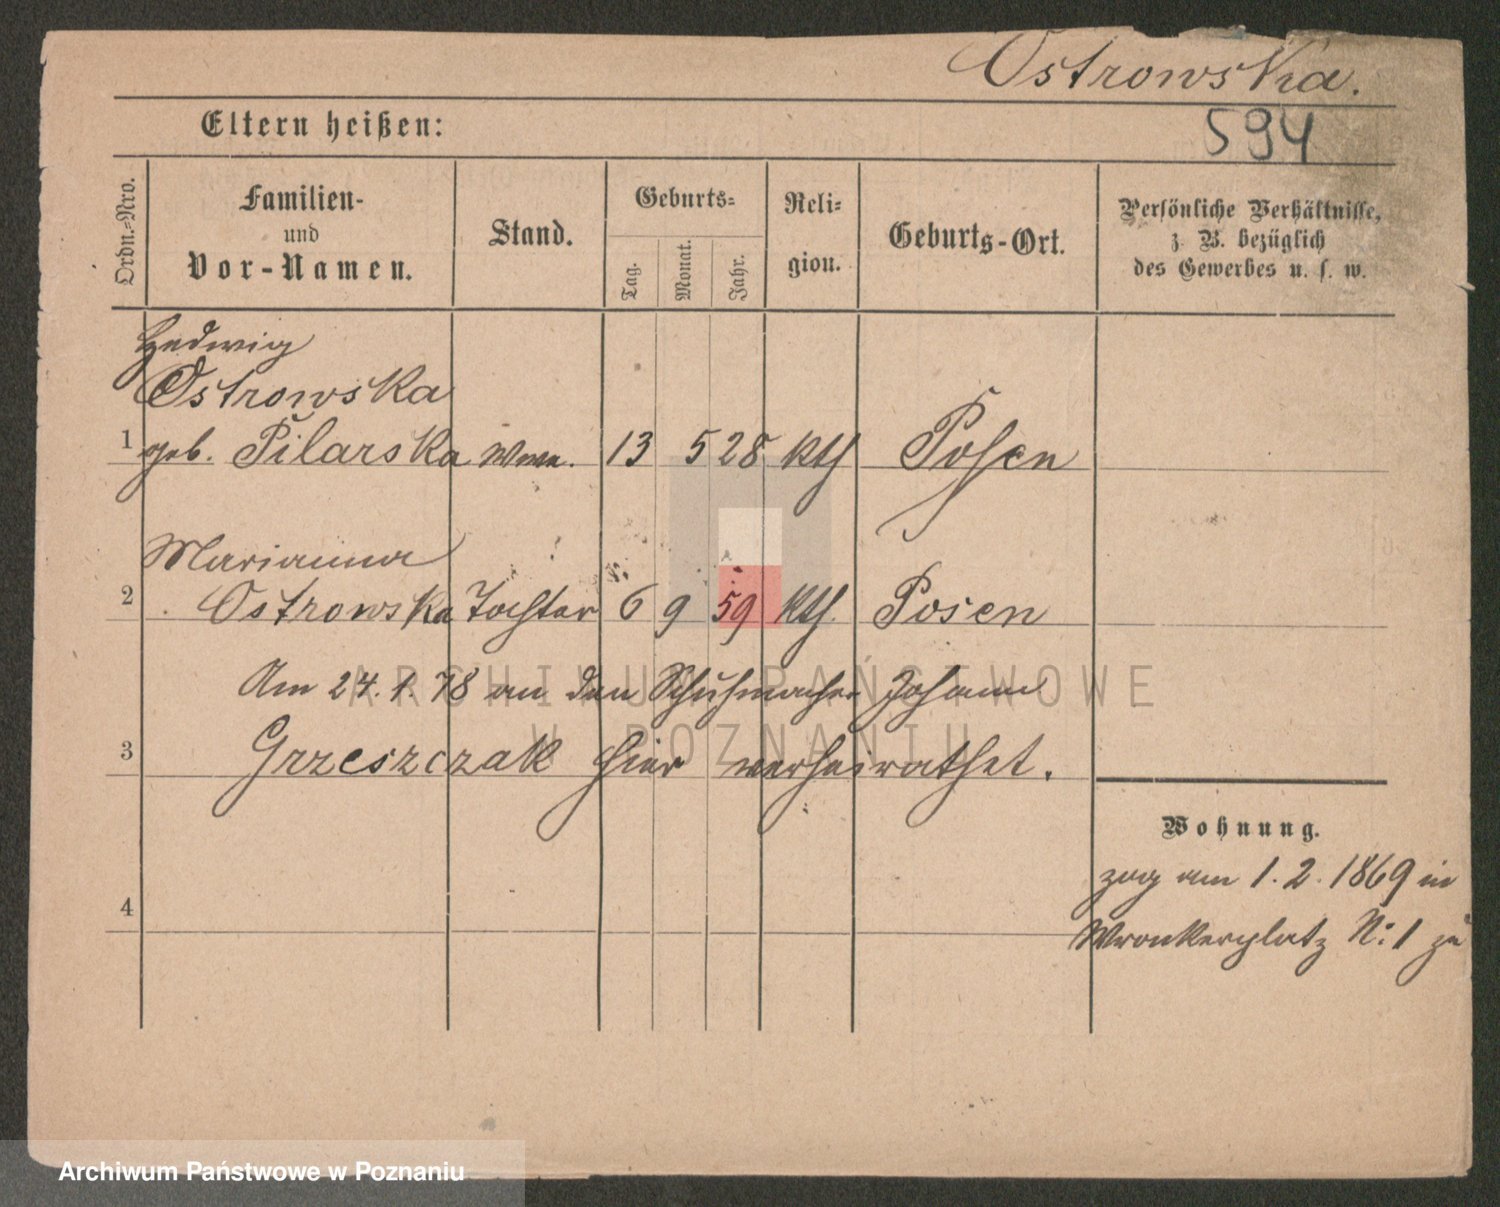 Ostrowska.
594
Eltern heißen:
Ordn.-Nro.
Familien-
und
Vor-Namen.
Stand.
Geburts-
Tag.
Monat.
Jahr.
Reli-
gion.
Geburts-Ort.
Persönliche Verhältnisse,
z. B. bezüglich
des Gewerbes u. s. w.
Hedwig
Ostrowska
1 geb. Pilarska Wwe. 13 5 28 kth Posen
Marianna
2 Ostrowska Tochter 6 9 59 kth. Posen
Am 24.1.78 an den Schuhmacher Johann
3 Grzeszczak hier verheirathet.
Wohnung.
zog am 1. 2. 1869 in
4
Wronkerplatz N: 1 zu
ARCHIWUM PAŃSTWOWE
W POZNANIU
Archiwum Państwowe w Poznaniu